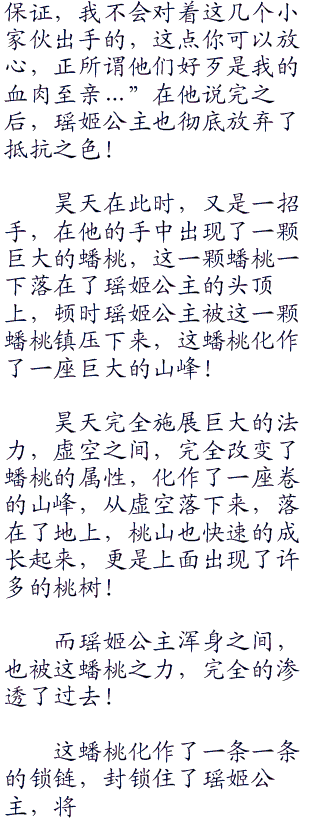 保证，我不会对着这几个小
家伙出手的，这点你可以放
心，正所谓他们好歹是我的
血肉至亲…”在他说完之
后，瑶姬公主也彻底放弃了
抵抗之色！
昊天在此时，又是一招
手，在他的手中出现了一颗
巨大的蟠桃，这一颗蟠桃一
下落在了瑶姬公主的头顶
上，顿时瑶姬公主被这一颗
蟠桃镇压下来，这蟠桃化作
了一座巨大的山峰！
昊天完全施展巨大的法
力，虚空之间，完全改变了
蟠桃的属性，化作了一座卷
的山峰，从虚空落下来，落
在了地上，桃山也快速的成
长起来，更是上面出现了许
多的桃树！
而瑶姬公主浑身之间，
也被这蟠桃之力，完全的渗
透了过去！
这蟠桃化作了一条一条
的锁链，封锁住了瑶姬公
主，将